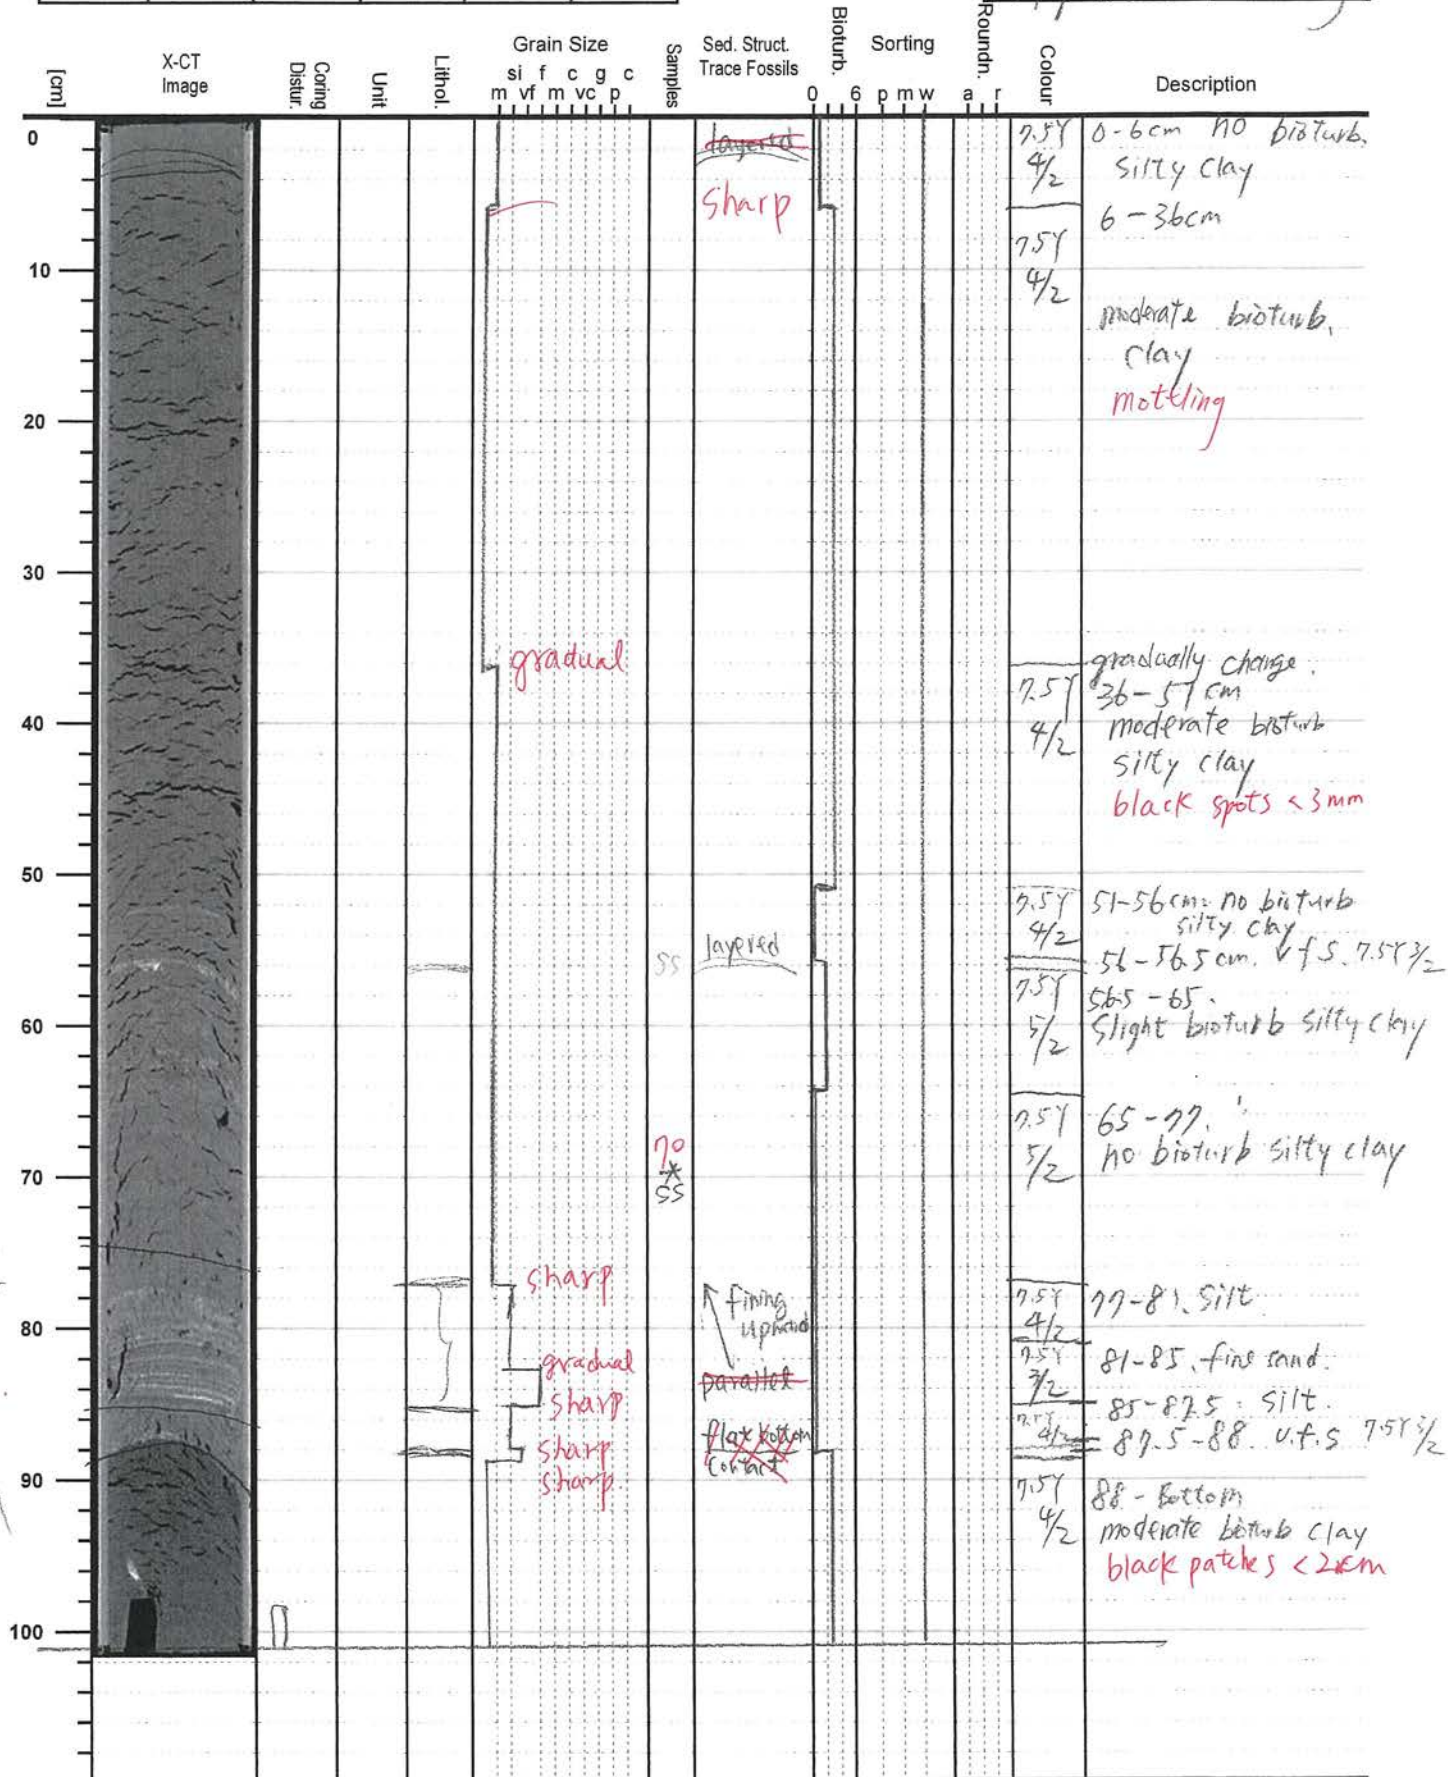 [cm]
X-CT
Image
Coring
Distur.
Unit
Lithol.
Grain Size
si f c g c
m vf m vc p
Samples
Sed. Struct.
Trace Fossils
Bioturb.
0 6
Sorting
p m w
Roundn.
a r
Colour
Description
0
10
20
30
40
50
60
70
80
90
100
gradual
sharp
gradual
sharp
sharp
sharp.
SS
70
SS
layered
Sharp
layered
fining
upward
parallel
flat bottom
contact
7.5Y
4/2
7.5Y
4/2
7.5Y
4/2
7.5Y
4/2
7.5Y
5/2
7.5Y
5/2
7.5Y
4/2
7.5Y
3/2
7.5Y
4/2
7.5Y
4/2
0-6cm no bioturb.
silty clay
6-36cm
moderate bioturb.
clay
mottling
gradually change.
36-51cm
moderate bioturb
silty clay
black spots <3mm
51-56cm: no bioturb
silty clay
56-56.5cm. v f s. 7.5Y 3/2
56.5-65.
Slight bioturb silty clay
65-77.
no bioturb silty clay
77-81. Silt
81-85. fine sand.
85-87.5: Silt.
87.5-88. v.f.s 7.5Y 3/2
88-Bottom
moderate bioturb clay
black patches <2cm